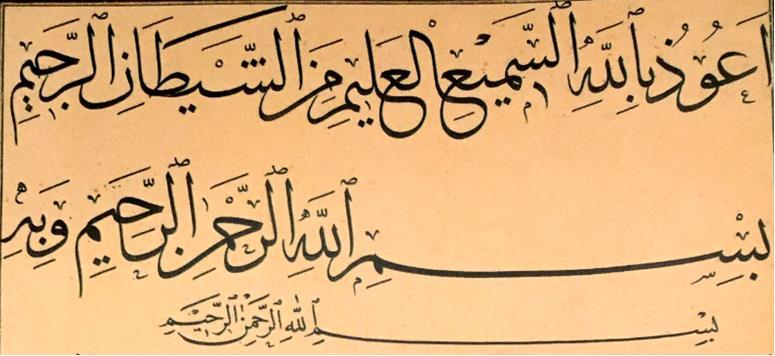 اَعُوذُ بِاللّٰهِ السَّمِيعِ الْعَلِيمِ مِنَ الشَّيْطَانِ الرَّجِيمِ
بِسْمِ اللّٰهِ الرَّحْمٰنِ الرَّحِيمِ وَبِهِ
بِسْمِ اللّٰهِ الرَّحْمٰنِ الرَّحِيمِ